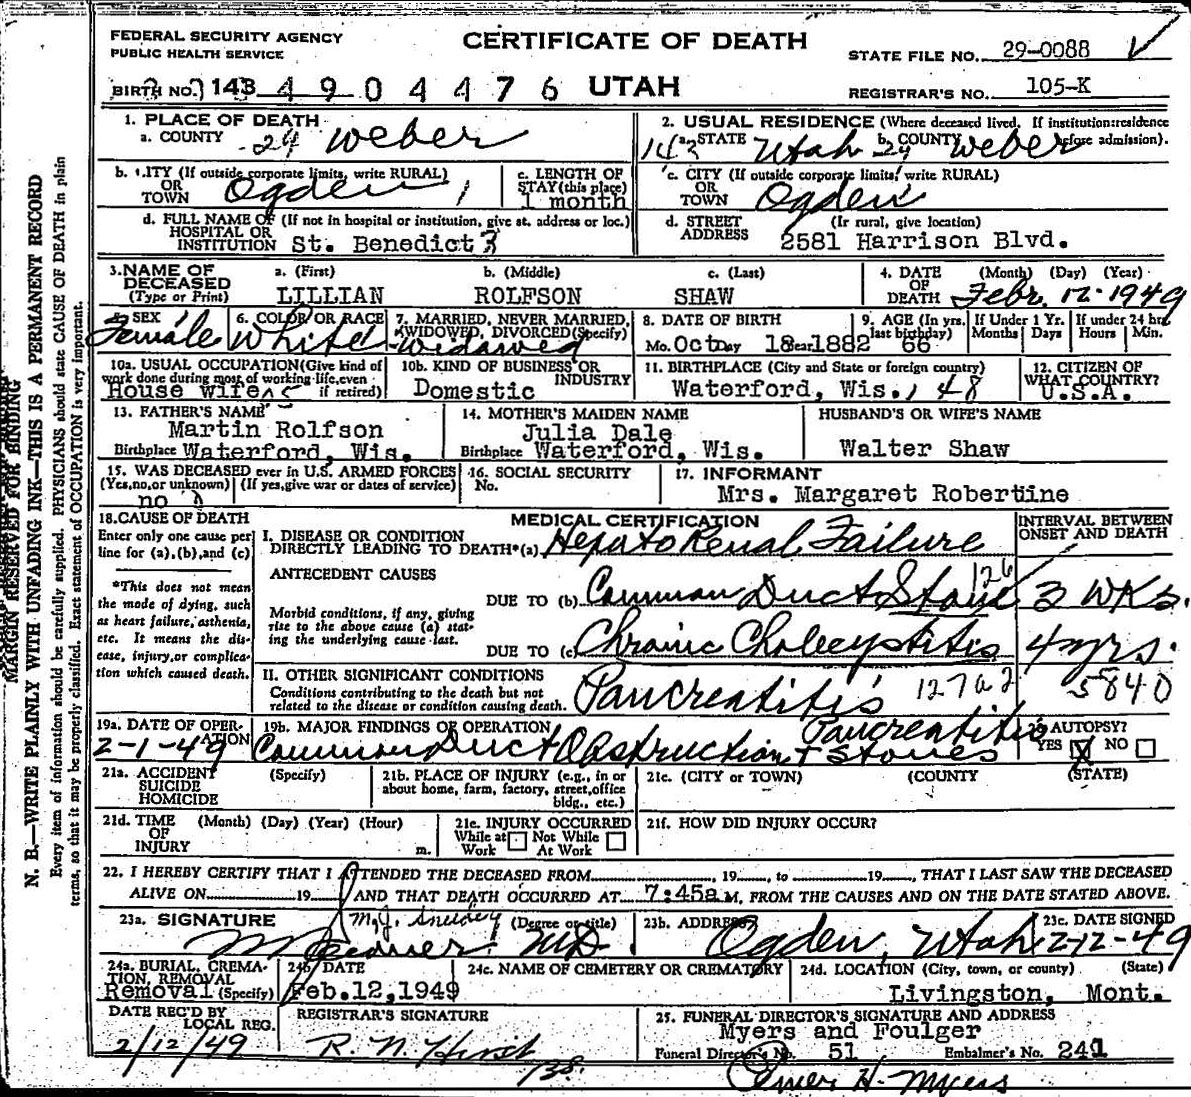 FEDERAL SECURITY AGENCY
PUBLIC HEALTH SERVICE
CERTIFICATE OF DEATH
STATE FILE NO. 29-0088
BIRTH NO. 143 4904476 UTAH
REGISTRAR'S NO. 105-K
1. PLACE OF DEATH
a. COUNTY 29 Weber
2. USUAL RESIDENCE (Where deceased lived. If institution: residence before admission).
143 a. STATE Utah 29 b. COUNTY Weber
b. CITY (If outside corporate limits, write RURAL) OR TOWN Ogden 1
c. LENGTH OF STAY (this place) 1 month
c. CITY (If outside corporate limits, write RURAL) OR TOWN Ogden
d. FULL NAME OF HOSPITAL OR INSTITUTION (If not in hospital or institution, give st. address or loc.) St. Benedict 3
d. STREET ADDRESS (If rural, give location) 2581 Harrison Blvd.
3. NAME OF DECEASED (Type or Print)
a. (First) LILLIAN
b. (Middle) ROLFSON
c. (Last) SHAW
4. DATE OF DEATH (Month) (Day) (Year) Febr. 12 - 1949
5. SEX Female
6. COLOR OR RACE White
7. MARRIED, NEVER MARRIED, WIDOWED, DIVORCED (Specify) Widowed
8. DATE OF BIRTH Mo. Oct Day 18 Year 1882
9. AGE (In yrs. last birthday) 66
If Under 1 Yr. Months Days
If under 24 hrs. Hours Min.
10a. USUAL OCCUPATION (Give kind of work done during most of working life, even if retired) House wife
10b. KIND OF BUSINESS OR INDUSTRY Domestic
11. BIRTHPLACE (City and State or foreign country) Waterford, Wis. 148
12. CITIZEN OF WHAT COUNTRY? U.S.A.
13. FATHER'S NAME Martin Rolfson
Birthplace Waterford, Wis.
14. MOTHER'S MAIDEN NAME Julia Dale
Birthplace Waterford, Wis.
HUSBAND'S OR WIFE'S NAME
Walter Shaw
15. WAS DECEASED ever in U.S. ARMED FORCES
(Yes, no, or unknown) (If yes, give war or dates of service)
no
16. SOCIAL SECURITY No.
17. INFORMANT
Mrs. Margaret Robertine
18. CAUSE OF DEATH
Enter only one cause per line for (a), (b), and (c)
*This does not mean the mode of dying, such as heart failure, asthenia, etc. It means the disease, injury, or complication which caused death.
MEDICAL CERTIFICATION
INTERVAL BETWEEN ONSET AND DEATH
I. DISEASE OR CONDITION DIRECTLY LEADING TO DEATH*(a) Hepato Renal Failure
ANTECEDENT CAUSES
Morbid conditions, if any, giving rise to the above cause (a) stating the underlying cause last.
DUE TO (b) Common Duct Stone 126 3 WKS.
DUE TO (c) Chronic Cholecystitis 4 yrs.
II. OTHER SIGNIFICANT CONDITIONS
Conditions contributing to the death but not related to the disease or condition causing death.
Pancreatitis 127a2 5840
19a. DATE OF OPERATION 2-1-49
19b. MAJOR FINDINGS OF OPERATION Pancreatitis
Common Duct Obstruction + Stones
20. AUTOPSY? YES X NO
21a. ACCIDENT SUICIDE HOMICIDE (Specify)
21b. PLACE OF INJURY (e.g., in or about home, farm, factory, street, office bldg., etc.)
21c. (CITY or TOWN) (COUNTY (STATE)
21d. TIME OF INJURY (Month) (Day) (Year) (Hour) m.
21e. INJURY OCCURRED While at Work Not While At Work
21f. HOW DID INJURY OCCUR?
22. I HEREBY CERTIFY THAT I ATTENDED THE DECEASED FROM , 19 , to 19 , THAT I LAST SAW THE DECEASED
ALIVE ON 19 AND THAT DEATH OCCURRED AT 7:45a M, FROM THE CAUSES AND ON THE DATE STATED ABOVE.
23a. SIGNATURE (Degree or title) M.D.
23b. ADDRESS Ogden, Utah
23c. DATE SIGNED 2-12-49
24a. BURIAL, CREMATION, REMOVAL (Specify) Removal
24b. DATE Feb.12,1949
24c. NAME OF CEMETERY OR CREMATORY
24d. LOCATION (City, town, or county) (State)
Livingston, Mont.
DATE REC'D BY LOCAL REG.
2/12/49
REGISTRAR'S SIGNATURE
R. N. Hirst
25. FUNERAL DIRECTOR'S SIGNATURE AND ADDRESS
Myers and Foulger
Funeral Director's No. 51 Embalmer's No. 241
Omer H. Myers
MARGIN RESERVED FOR BINDING
N. B.—WRITE PLAINLY WITH UNFADING INK—THIS IS A PERMANENT RECORD
Every item of information should be carefully supplied. PHYSICIANS should state CAUSE OF DEATH in plain
terms, so that it may be properly classified. Exact statement of OCCUPATION is very important.